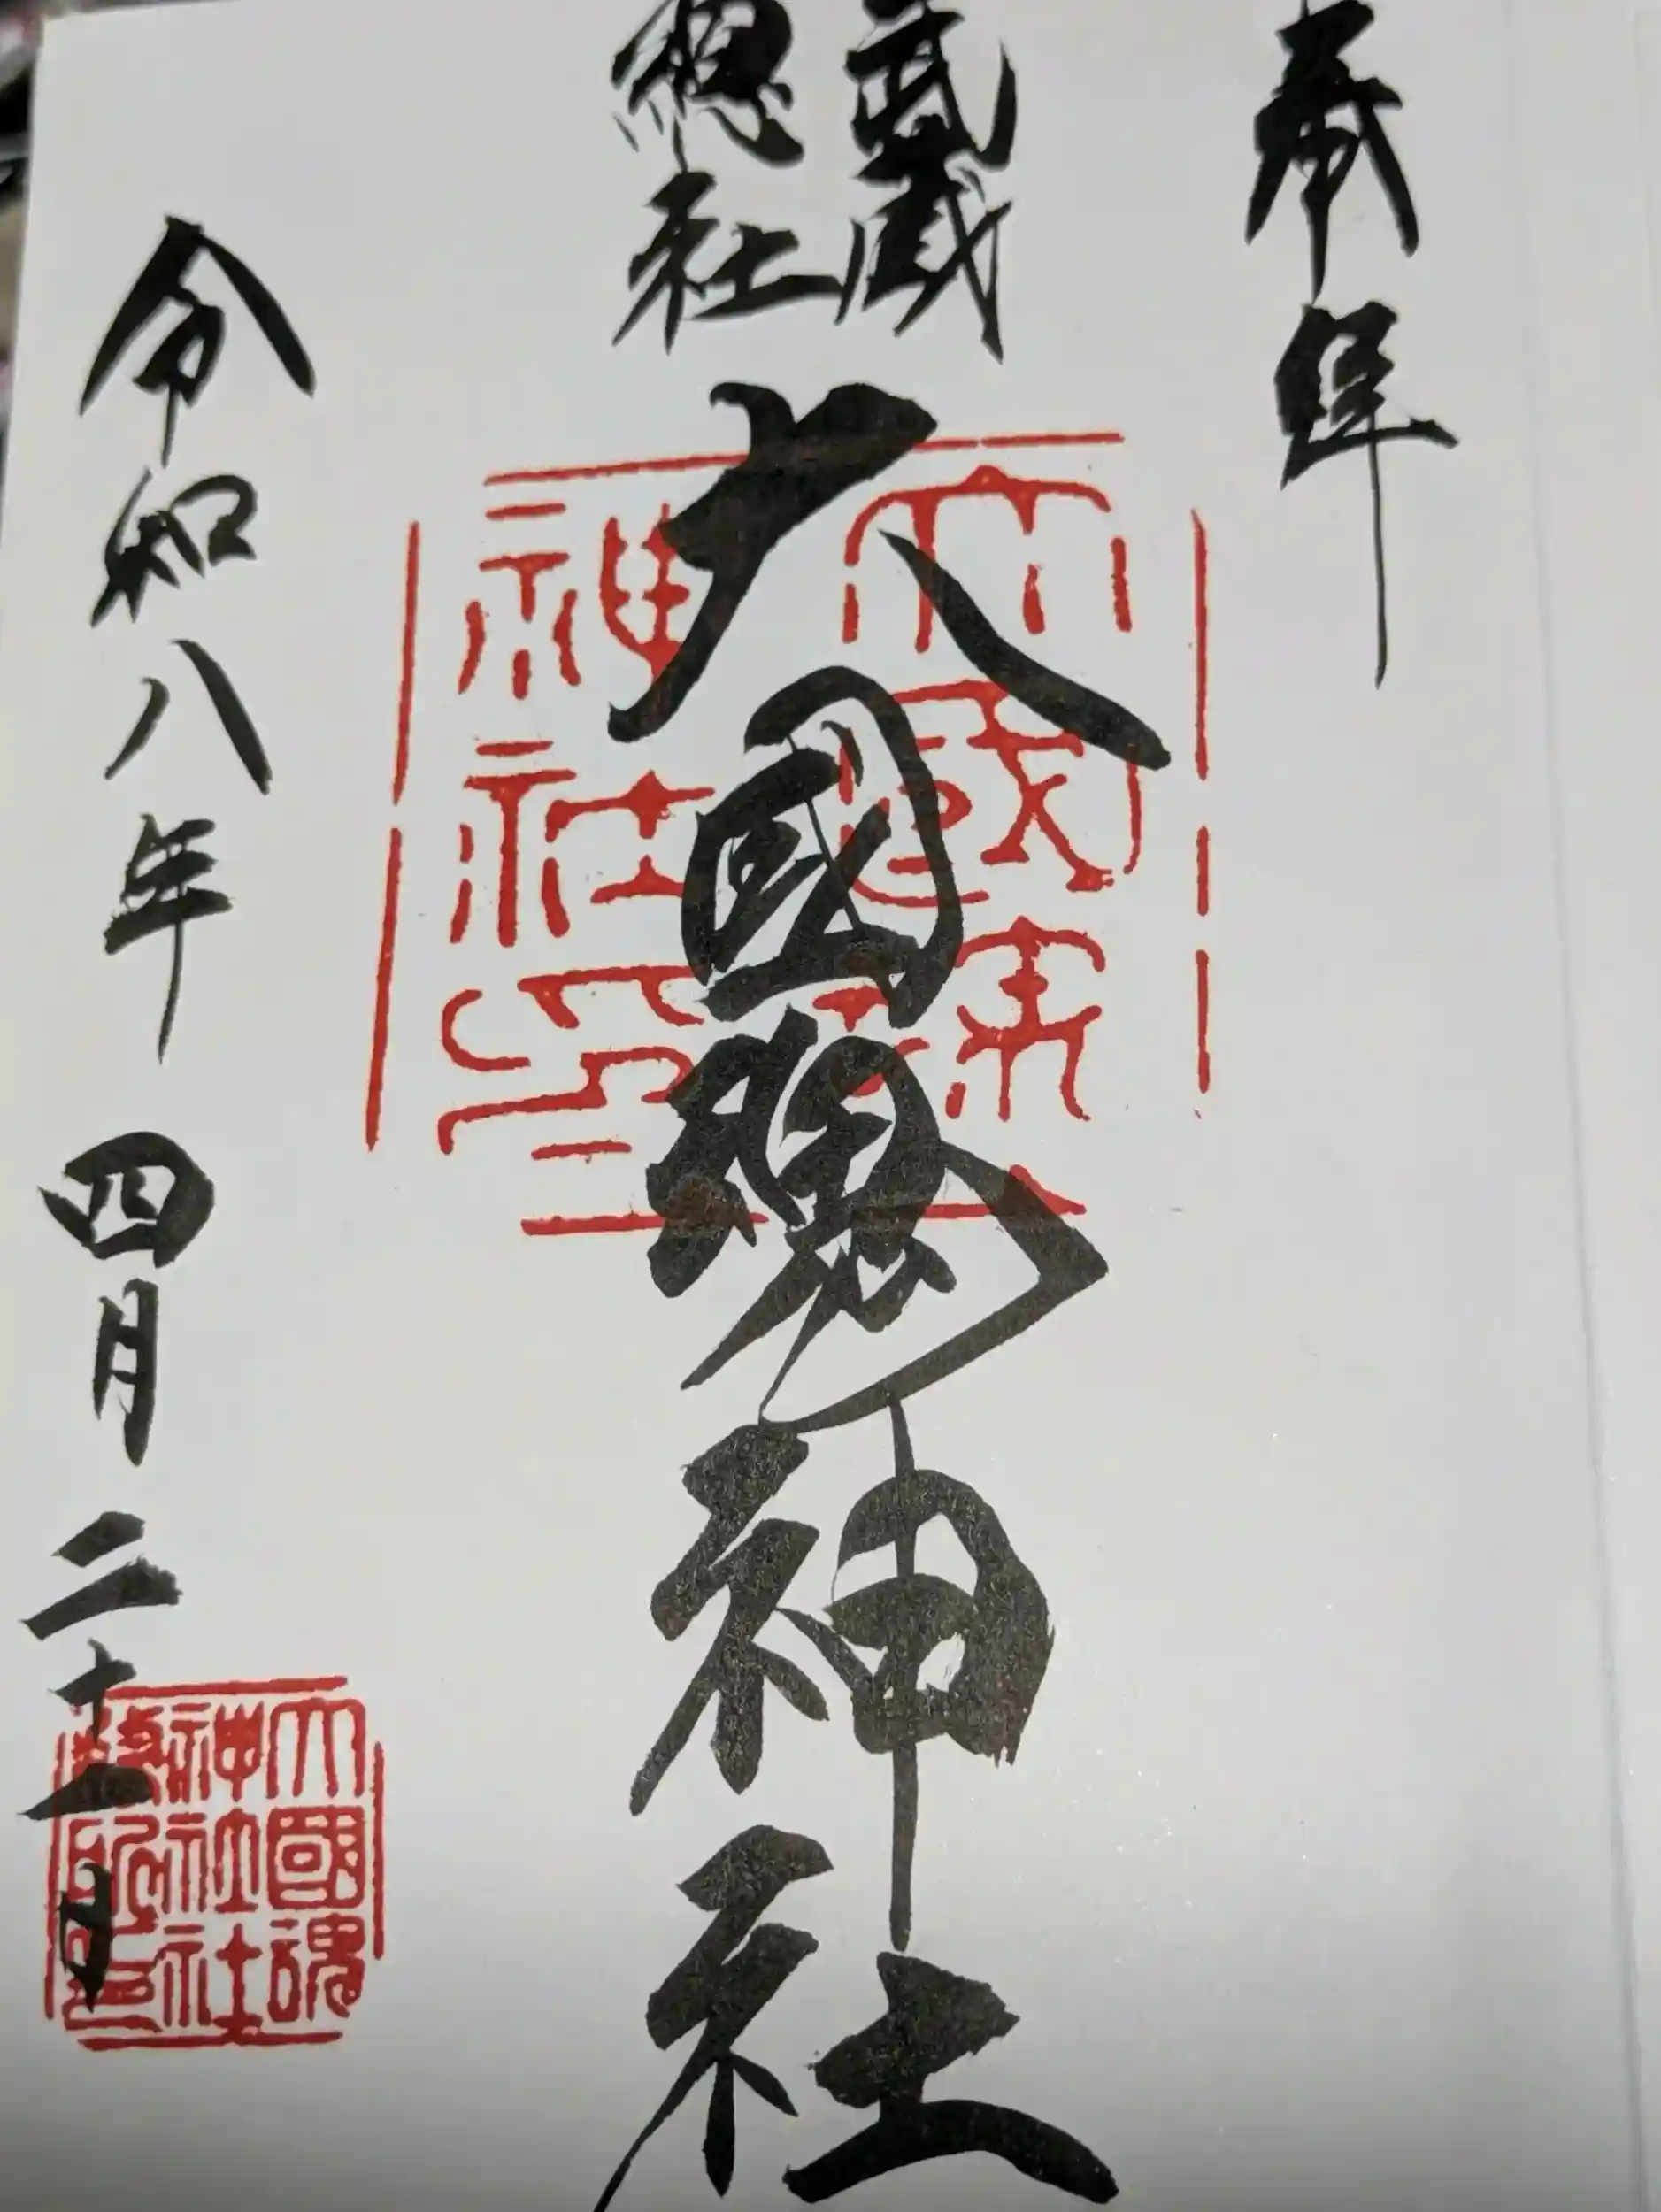 奉拝
武蔵
總社
大國魂神社
令和八年 四月 二十一日
大國魂
神社印
大國魂
神社社
務所印